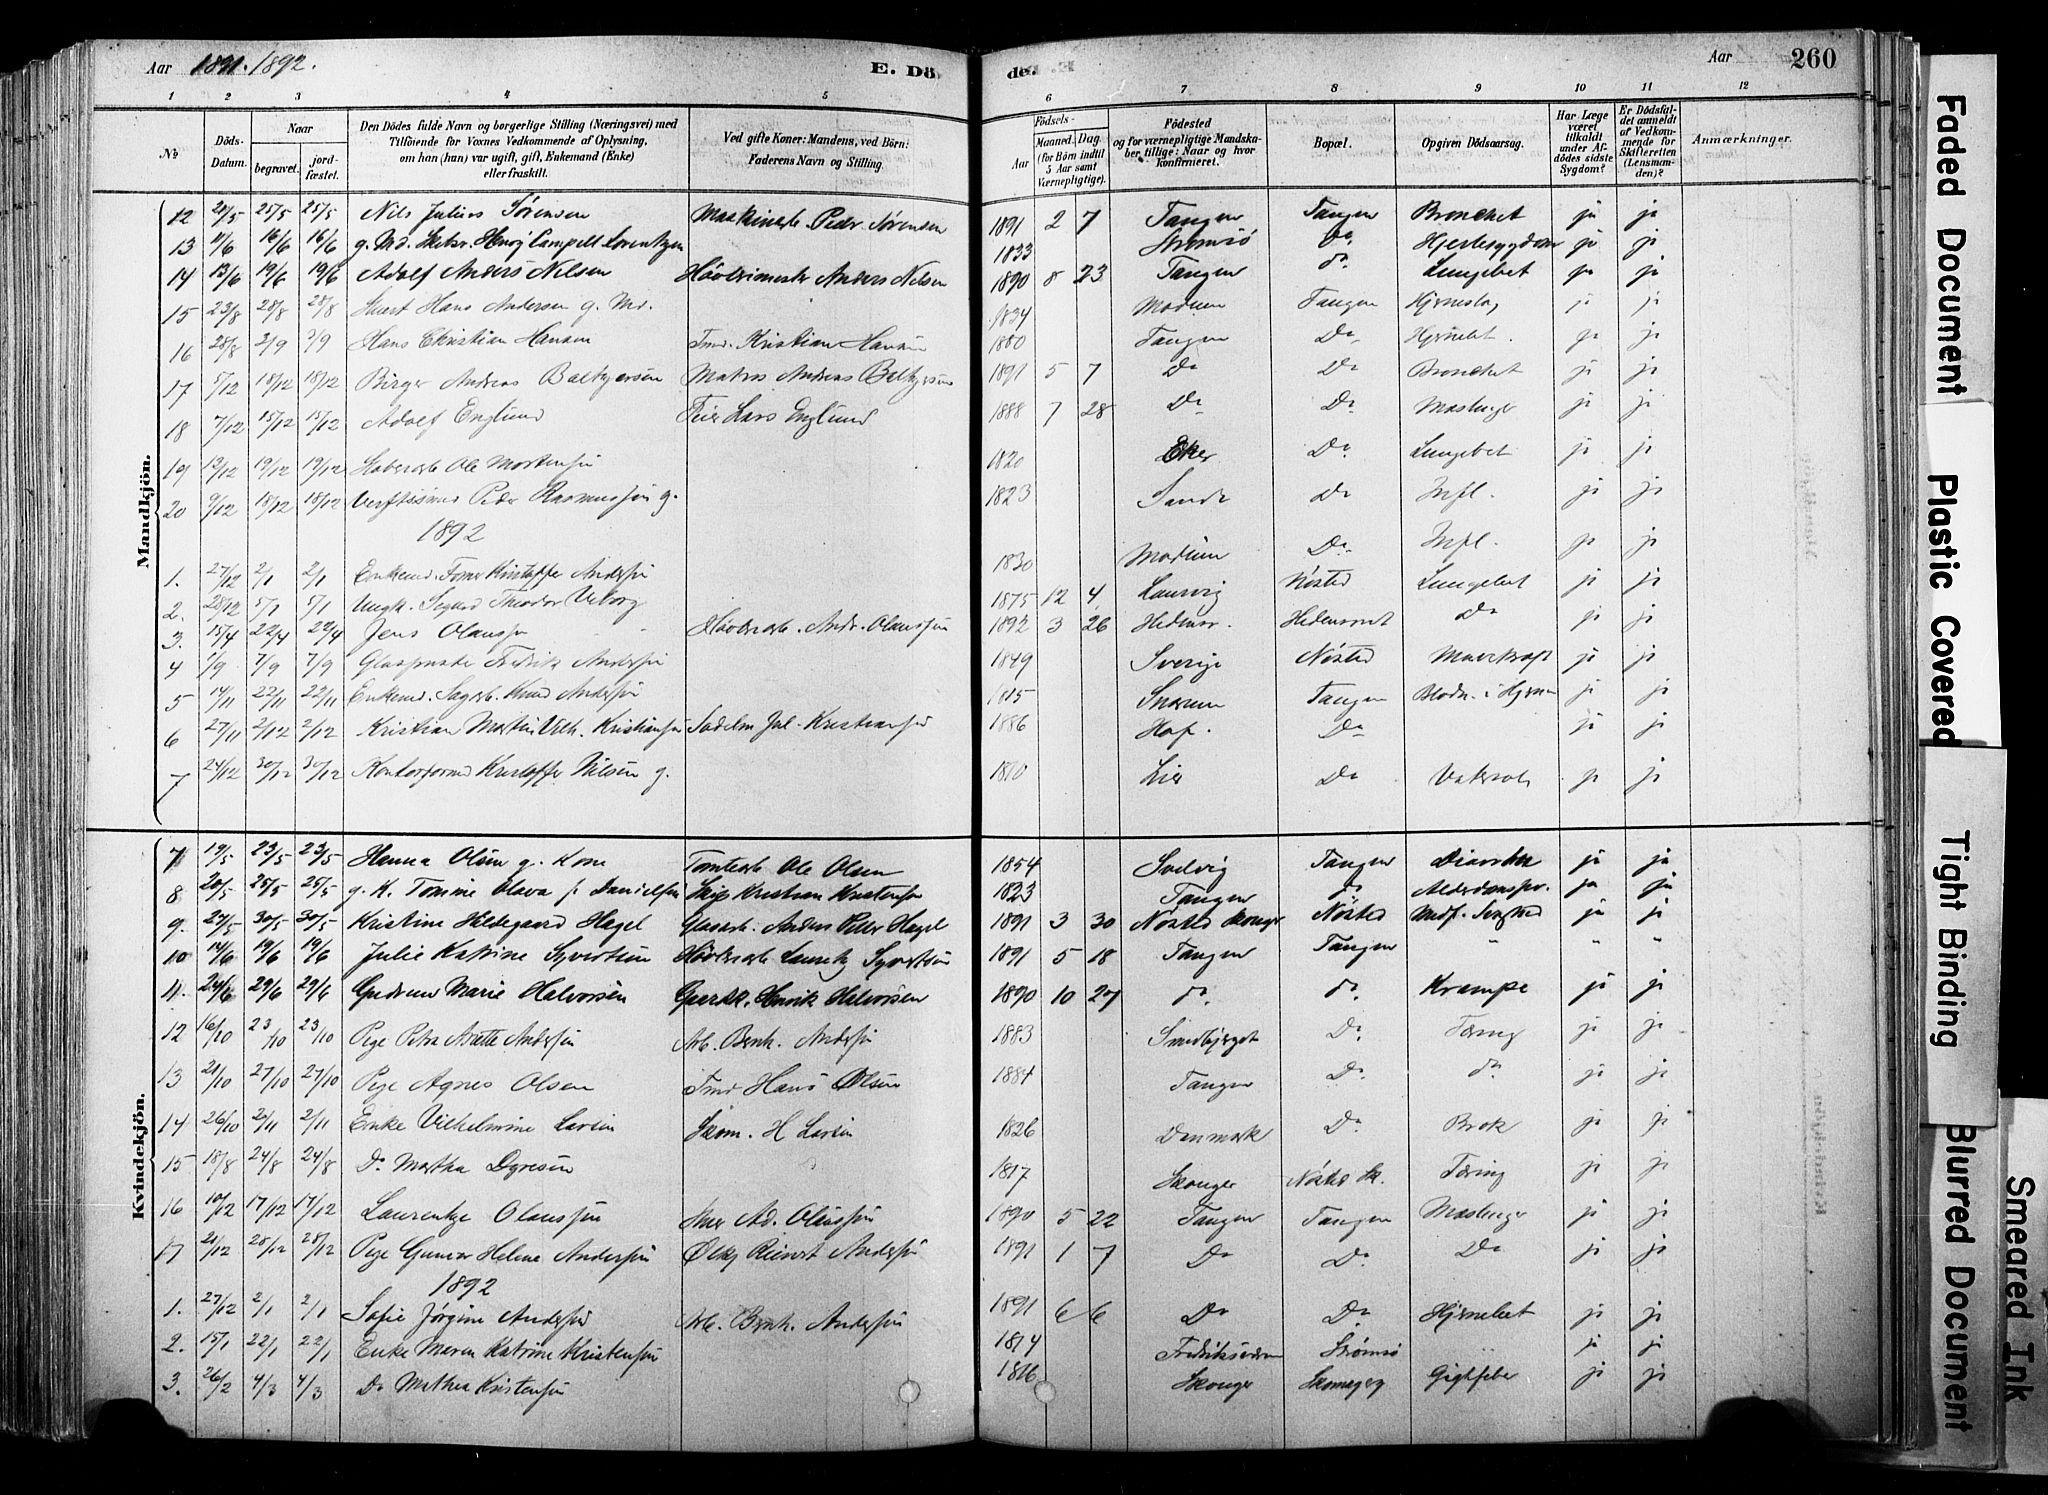 Aar 1891. 1892.
E. Dö de.
Aar 260
1 2 3 4 5 6 7 8 9 10 11 12
No
Döds-Datum.
Naar
begravet.
jord-fæstet.
Den Dödes fulde Navn og borgerlige Stilling (Næringsvei) med
Tilföiende for Voxnes Vedkommende af Oplysning,
om han (hun) var ugift, gift, Enkemand (Enke)
eller fraskilt.
Ved gifte Koner: Mandens, ved Börn:
Faderens Navn og Stilling.
Födsels-
Aar
Maaned. Dag.
(for Börn indtil
5 Aar samt
Værnepligtige).
Födested
og for værnepligtige Mandska-
ber tillige: Naar og hvor
konfirmeret.
Bopæl.
Opgiven Dödsaarsag.
Har Læge
været
tilkaldt
under Af-
dödes sidste
Sygdom?
Er Dödsfal-
det anmeldt
af Vedkom-
mende for
Skifteretten
(Lensman-
den)?
Anmærkninger.
Mandkjön.
12 25/5 25/5 Nils Julius Sørensen Peder Sørensen 1891 2 7 Tangen Tangen Bronchit ja ja
13 11/6 16/6 16/6 g. Md. Henry Campell Lorentzen 1833 Strømsø Do Hjertesygdom ja ja
14 13/6 19/6 19/6 Adolf Anders Nilsen Anders Nilsen 1890 8 23 Tangen do. Lungebet ja ja
15 23/8 28/8 28/8 Hans Andersen g. Md. 1834 Modum Tangen Hjerneslag ja ja
16 28/8 2/9 2/9 Hans Christian Hansen Tmd. Kristian Hansen 1880 Tangen Do Hjernebet. ja ja
17 5/12 18/12 18/12 Birger Andreas Baltzersen Matros Andreas Baltzersen 1891 5 7 Do Do Bronchit ja ja
18 7/12 15/12 15/12 Adolf Englund Feier Lars Englund 1888 7 28 Do Do Mæslinger ja ja
19 12/12 19/12 19/12 Ole Mortensen 1820 Eker Do Lungebet ja ja
20 9/12 18/12 18/12 Peder Rasmussen g. 1823 Sande Do Infl. ja ja
1892
1. 27/12 2/1 2/1 Enkemd. Kristoffer Andersen 1830 Modum Do Infl. ja ja
2. 28/12 5/1 5/1 Ungk. Sigurd Theodor Viborg 1875 12 4 Laurvig Nøsted Lungebet ja ja
3. 15/4 22/4 22/4 Jens Olausen Høvlerarb. Andr. Olaussen 1892 3 26 Hedensr. Hedensrud Do ja ja
4 1/9 7/9 7/9 Fredrik Andersen 1849 Sverige Nøsted Mavekræft ja ja
5 14/11 22/11 22/11 Enkemd. Sagarb. Knud Andersen 1815 Snarum Tangen Blodn. i Hjernen ja ja
6 27/11 2/12 2/12 Kristian Martin Vilh. Kristiansen Sadelm. Jul. Kristiansen 1886 Hof. Do ja ja
7 24/12 30/12 30/12 Kristoffer Nilsen g. 1810 Lier Do Vatersot ja ja
Kvindekjön.
7 19/5 23/5 23/5 Hanna Olsen g. Kone Tomtearb. Ole Olsen 1854 Svelvig Tangen Diarrhe ja ja
8 20/5 25/5 25/5 g. K. Tomine Olava f. Danielsen Skip Kristian Kristensen 1823 Tangen do ja ja
9. 24/5 30/5 30/5 Kristine Hildegaard Hagel Glasarb. Anders Peter Hagel 1891 3 30 Nøsted Skouger Nøsted Medf. Svaghed ja ja
10 14/6 19/6 19/6 Julie Katrine Syvertsen Høvlerarb. Lauritz Syvertsen 1891 5 18 Tangen Tangen " " "
11. 24/6 29/6 29/6 Gudrun Marie Halvorsen Henrik Halvorsen 1890 10 27 do. do. Krampe ja ja
12 16/10 23/10 23/10 Pige Petra Anette Andersen Arb. Bernh. Andersen 1883 Sandbjerget Do. Tæring ja ja
13 21/10 27/10 27/10 Pige Agnes Olsen Tmd Hans Olsen 1884 Tangen Do. do ja ja
14 26/10 2/11 2/11 Enke Vilhelmine Larsen Skom. H Larsen 1826 Danmark Do. Brok ja ja
15 18/8 24/8 24/8 Do Martha Dyresen 1817 Skouger Nøsted Sk. Tæring ja ja
16 10/12 17/12 17/12 Laurentze Olaussen Ad. Olaussen 1890 5 22 Tangen Tangen Mæslinger ja ja
17 21/12 28/12 28/12 Pige Gunvor Helene Andersen Andersen 1891 1 7 Do Do. Do ja ja
1892
1. 27/12 2/1 2/1 Sofie Jørgine Andersen Arb. Bernh. Andersen 1891 6 6 Do Do. Hjernebet ja ja
2. 15/1 22/1 22/1 Enke Maren Katrine Kristensen 1814 Fredriksværn Strømsø ja ja
3. 26/2 4/3 4/3 Do Mathea Kristensen 1816 Skouger Gigtfeber ja ja
Faded Document
Plastic Covered
Tight Binding
Blurred Document
Smeared Ink